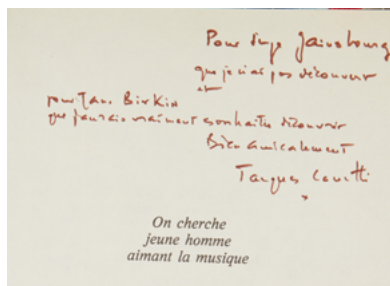 Pour Serge Gainsbourg
que je n'ai pas découvert
et
pour Jane Birkin
que j'aurais vraiment souhaité découvrir
Bien amicalement
Jacques Canetti
On cherche
jeune homme
aimant la musique